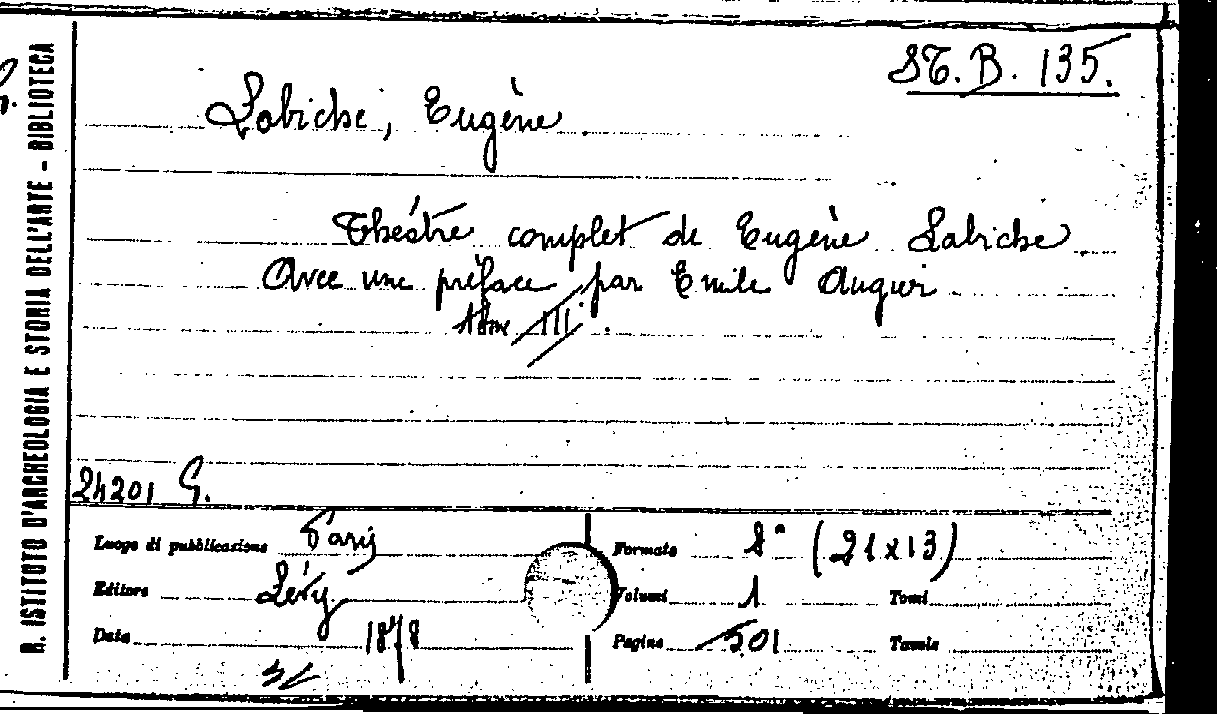 R. ISTITOTO D'ARCHEOLOGIA E STORIA DELL'ARTE - BIBLIOTECA
ST. B. 135.
Labiche, Eugène
Théâtre complet de Eugène Labiche
Avec une préface par Emile Augier
tome III.
24201 G.
Luogo di pubblicazione Paris
Editore Lévy
Data 1878
Formato 8° (21x13)
Volumi 1 Tomi
Pagine 501 Tavole